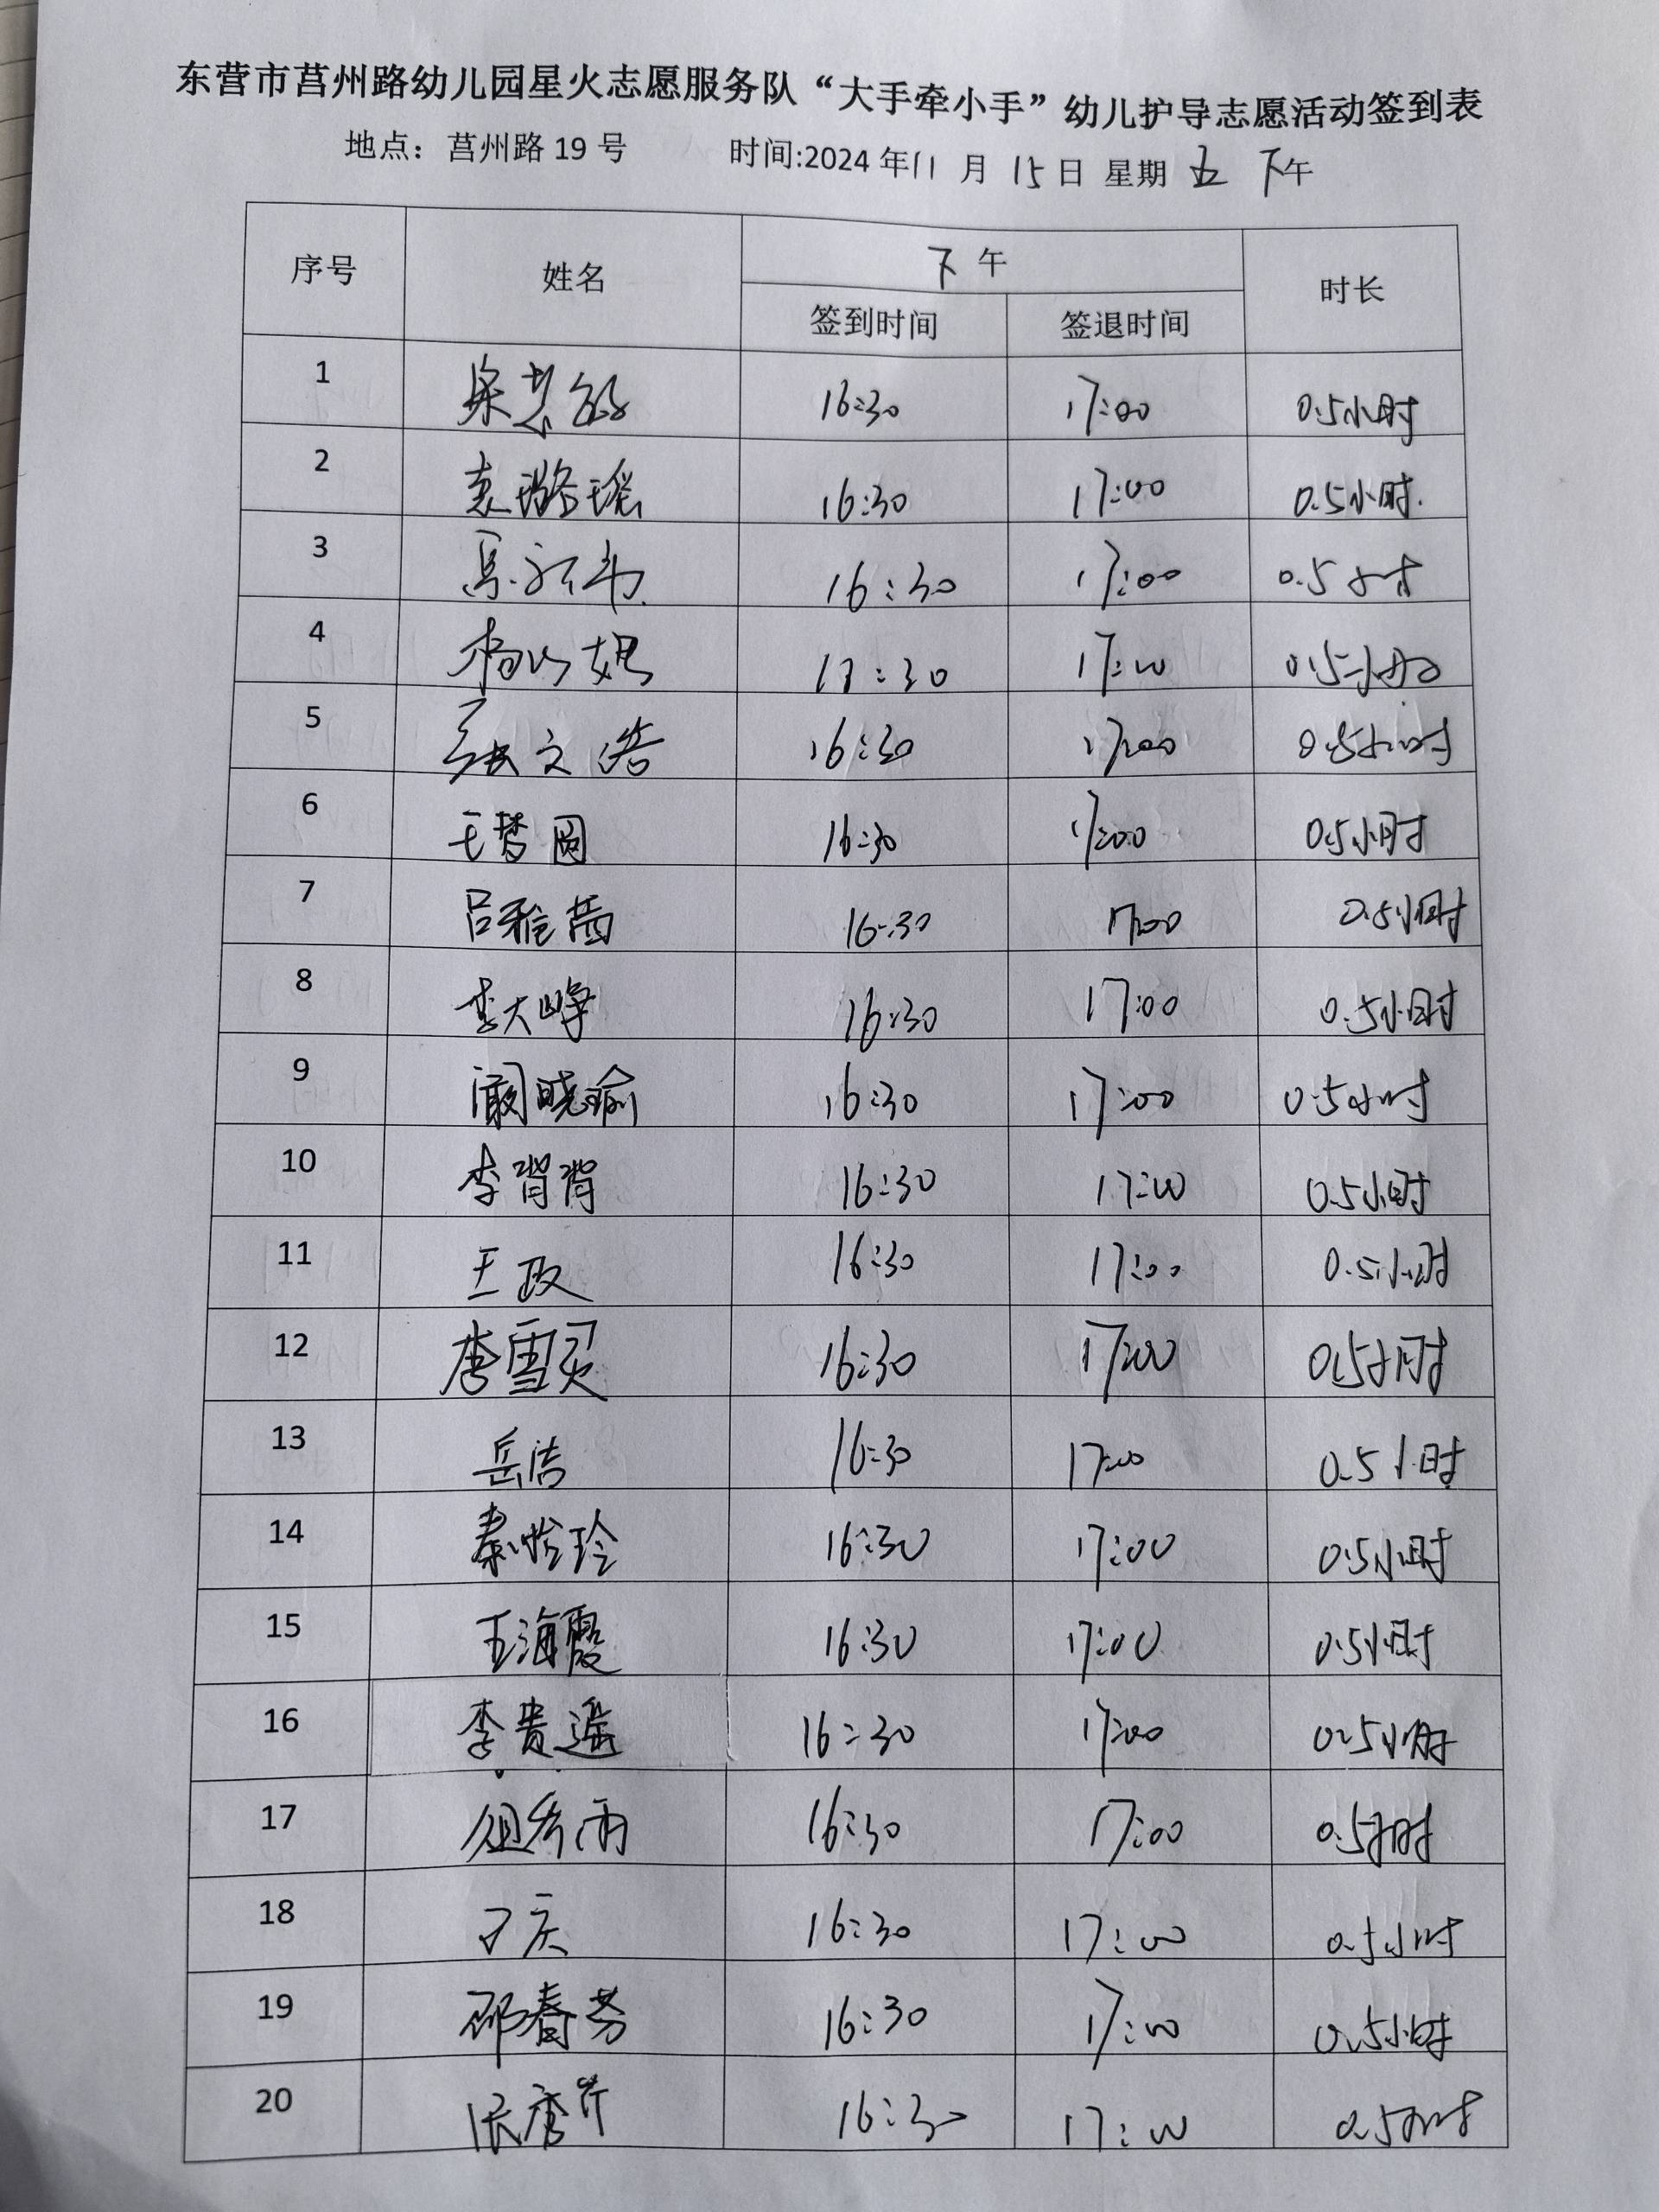 东营市莒州路幼儿园星火志愿服务队“大手牵小手”幼儿护导志愿活动签到表
地点：莒州路 19 号 时间:2024 年 11 月 15 日 星期 五 下午
序号 姓名 下午 时长
签到时间 签退时间
1 梁慧敏 16:30 17:00 0.5小时
2 袁璐瑶 16:30 17:00 0.5小时.
3 16:30 17:00 0.5小时
4 17:30 17:00 0.5小时
5 张文浩 16:30 17:00 0.5小时
6 王梦圆 16:30 17:00 0.5小时
7 吕雅茜 16:30 17:00 0.5小时
8 李大峥 16:30 17:00 0.5小时
9 阚晓瑜 16:30 17:00 0.5小时
10 李肖肖 16:30 17:00 0.5小时
11 王政 16:30 17:00 0.5小时
12 李雪灵 16:30 17:00 0.5小时
13 岳洁 16:30 17:00 0.5小时
14 秦悦玲 16:30 17:00 0.5小时
15 王海霞 16:30 17:00 0.5小时
16 李贵遥 16:30 17:00 0.5小时
17 16:30 17:00 0.5小时
18 刁庆 16:30 17:00 0.5小时
19 邵春芳 16:30 17:00 0.5小时
20 16:30 17:00 0.5小时